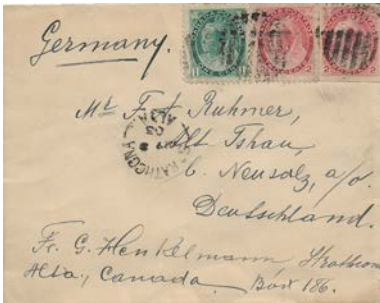 Germany.
Mr F. A. Ruhmer,
Alt Tshau,
b. Neusalz, a/o.
Deutschland.
STRATHCONA
ALTA
Fr. G. Henkelmann, Strathcona
Alta., Canada Box 186.